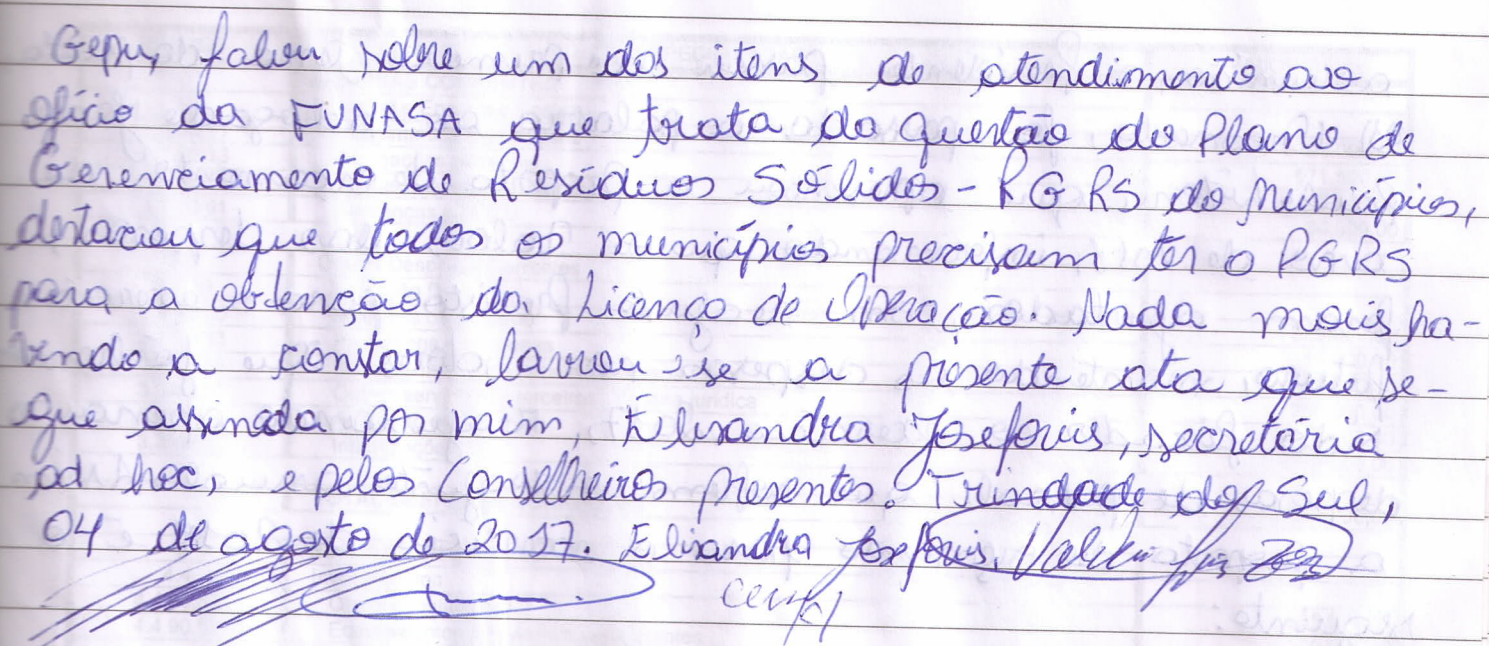 Gepu, falou sobre um dos itens de atendimento ao
ofício da FUNASA que trata da questão do Plano de
Gerenciamento de Resíduos Sólidos - PGRS do Municípios,
destacou que todos os municípios precisam ter o PGRS
para a obtenção da Licença de Operação. Nada mais ha-
vendo a constar, lavrou-se a presente ata que se-
gue assinada por mim, Elisandra Joseforis, secretária
ad hoc, e pelos Conselheiros presentes. Trindade do Sul,
04 de agosto de 2017. Elisandra Joseforis,